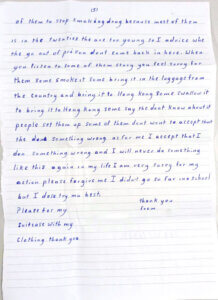 (5)
of them to stop smoking drug because most of them
is in the twenties the are for young so I advice who
the go out of prison dont come back in here. When
you listen to some of them story you feel sorry for
them some smoke it some bring it in the luggage from
the country and bring it to Hong Kong some swallow it
to bring it to Hong Kong some say the dont knew about it
people set them up some of them dont went to accept that
the something wrong. as for me I accept that I
don something wrong and I will never do something
like this again in my life I am very sorry for my
action please forgive me I didnt go so far in school
but I dose try my best.
Thank you
Please for my
from
Suitcase with my
Clothing thank you